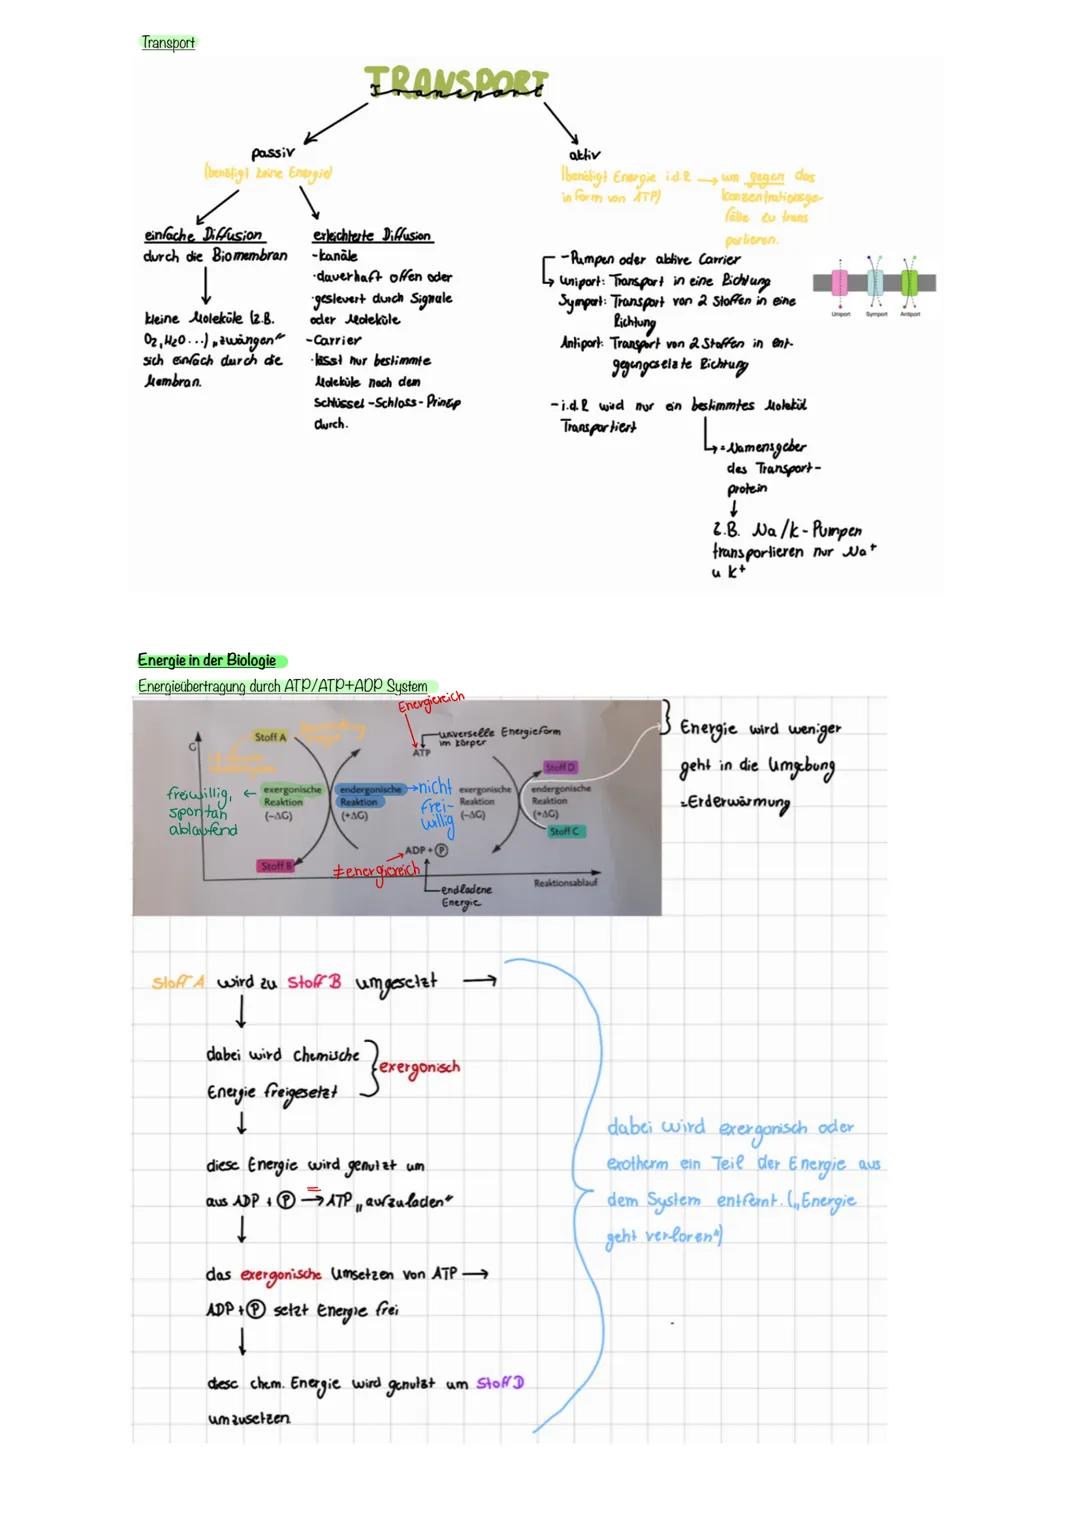 Transport
TRANSPORT
Transport
passiv
(benötigt keine Energie)
einfache Diffusion
durch die Biomembran
kleine Moleküle (z.B.
O2, H2O...) „zwängen"
sich einfach durch die
Membran.
erleichterte Diffusion
-kanäle
·dauerhaft offen oder
·gesteuert durch Signale
oder Moleküle
-Carrier
·lässt nur bestimmte
Moleküle nach dem
Schlüssel-Schloss-Prinzip
durch.
aktiv
(benötigt Energie i.d.R → um gegen das
in Form von ATP)
Konzentrationsge-
fälle zu trans
portieren.
-Pumpen oder aktive Carrier
Uniport: Transport in eine Richtung
Symport: Transport von 2 Stoffen in eine
Richtung
Antiport: Transport von 2 Stoffen in ent-
gegengesetzte Richtung
Uniport Symport Antiport
-i.d.R wird nur ein bestimmtes Molekül
Transportiert
= Namensgeber
des Transport-
protein
z.B. Na/K-Pumpen
transportieren nur Na+
u K+
Energie in der Biologie
Energieübertragung durch ATP/ATP+ADP System
Energiereich
G
Stoff A
universelle Energieform
im körper
ATP
Stoff D
freiwillig,
spontan
ablaufend
exergonische
Reaktion
(-ΔG)
endergonische
Reaktion
(+ΔG)
nicht
frei-
willig
exergonische
Reaktion
(-ΔG)
endergonische
Reaktion
(+ΔG)
Stoff C
Stoff B
≠energiereich
ADP + P
endladene
Energie
Reaktionsablauf
Energie wird weniger
geht in die Umgebung
=Erderwärmung
Stoff A wird zu Stoff B umgesetzt →
dabei wird chemische
Energie freigesetzt
exergonisch
diese Energie wird genutzt um
aus ADP + P → ATP „aufzuladen"
das exergonische Umsetzen von ATP →
ADP + P setzt Energie frei
diese chem. Energie wird genutzt um Stoff D
umzusetzen
dabei wird exergonisch oder
exotherm ein Teil der Energie aus
dem System entfernt. („Energie
geht verloren")